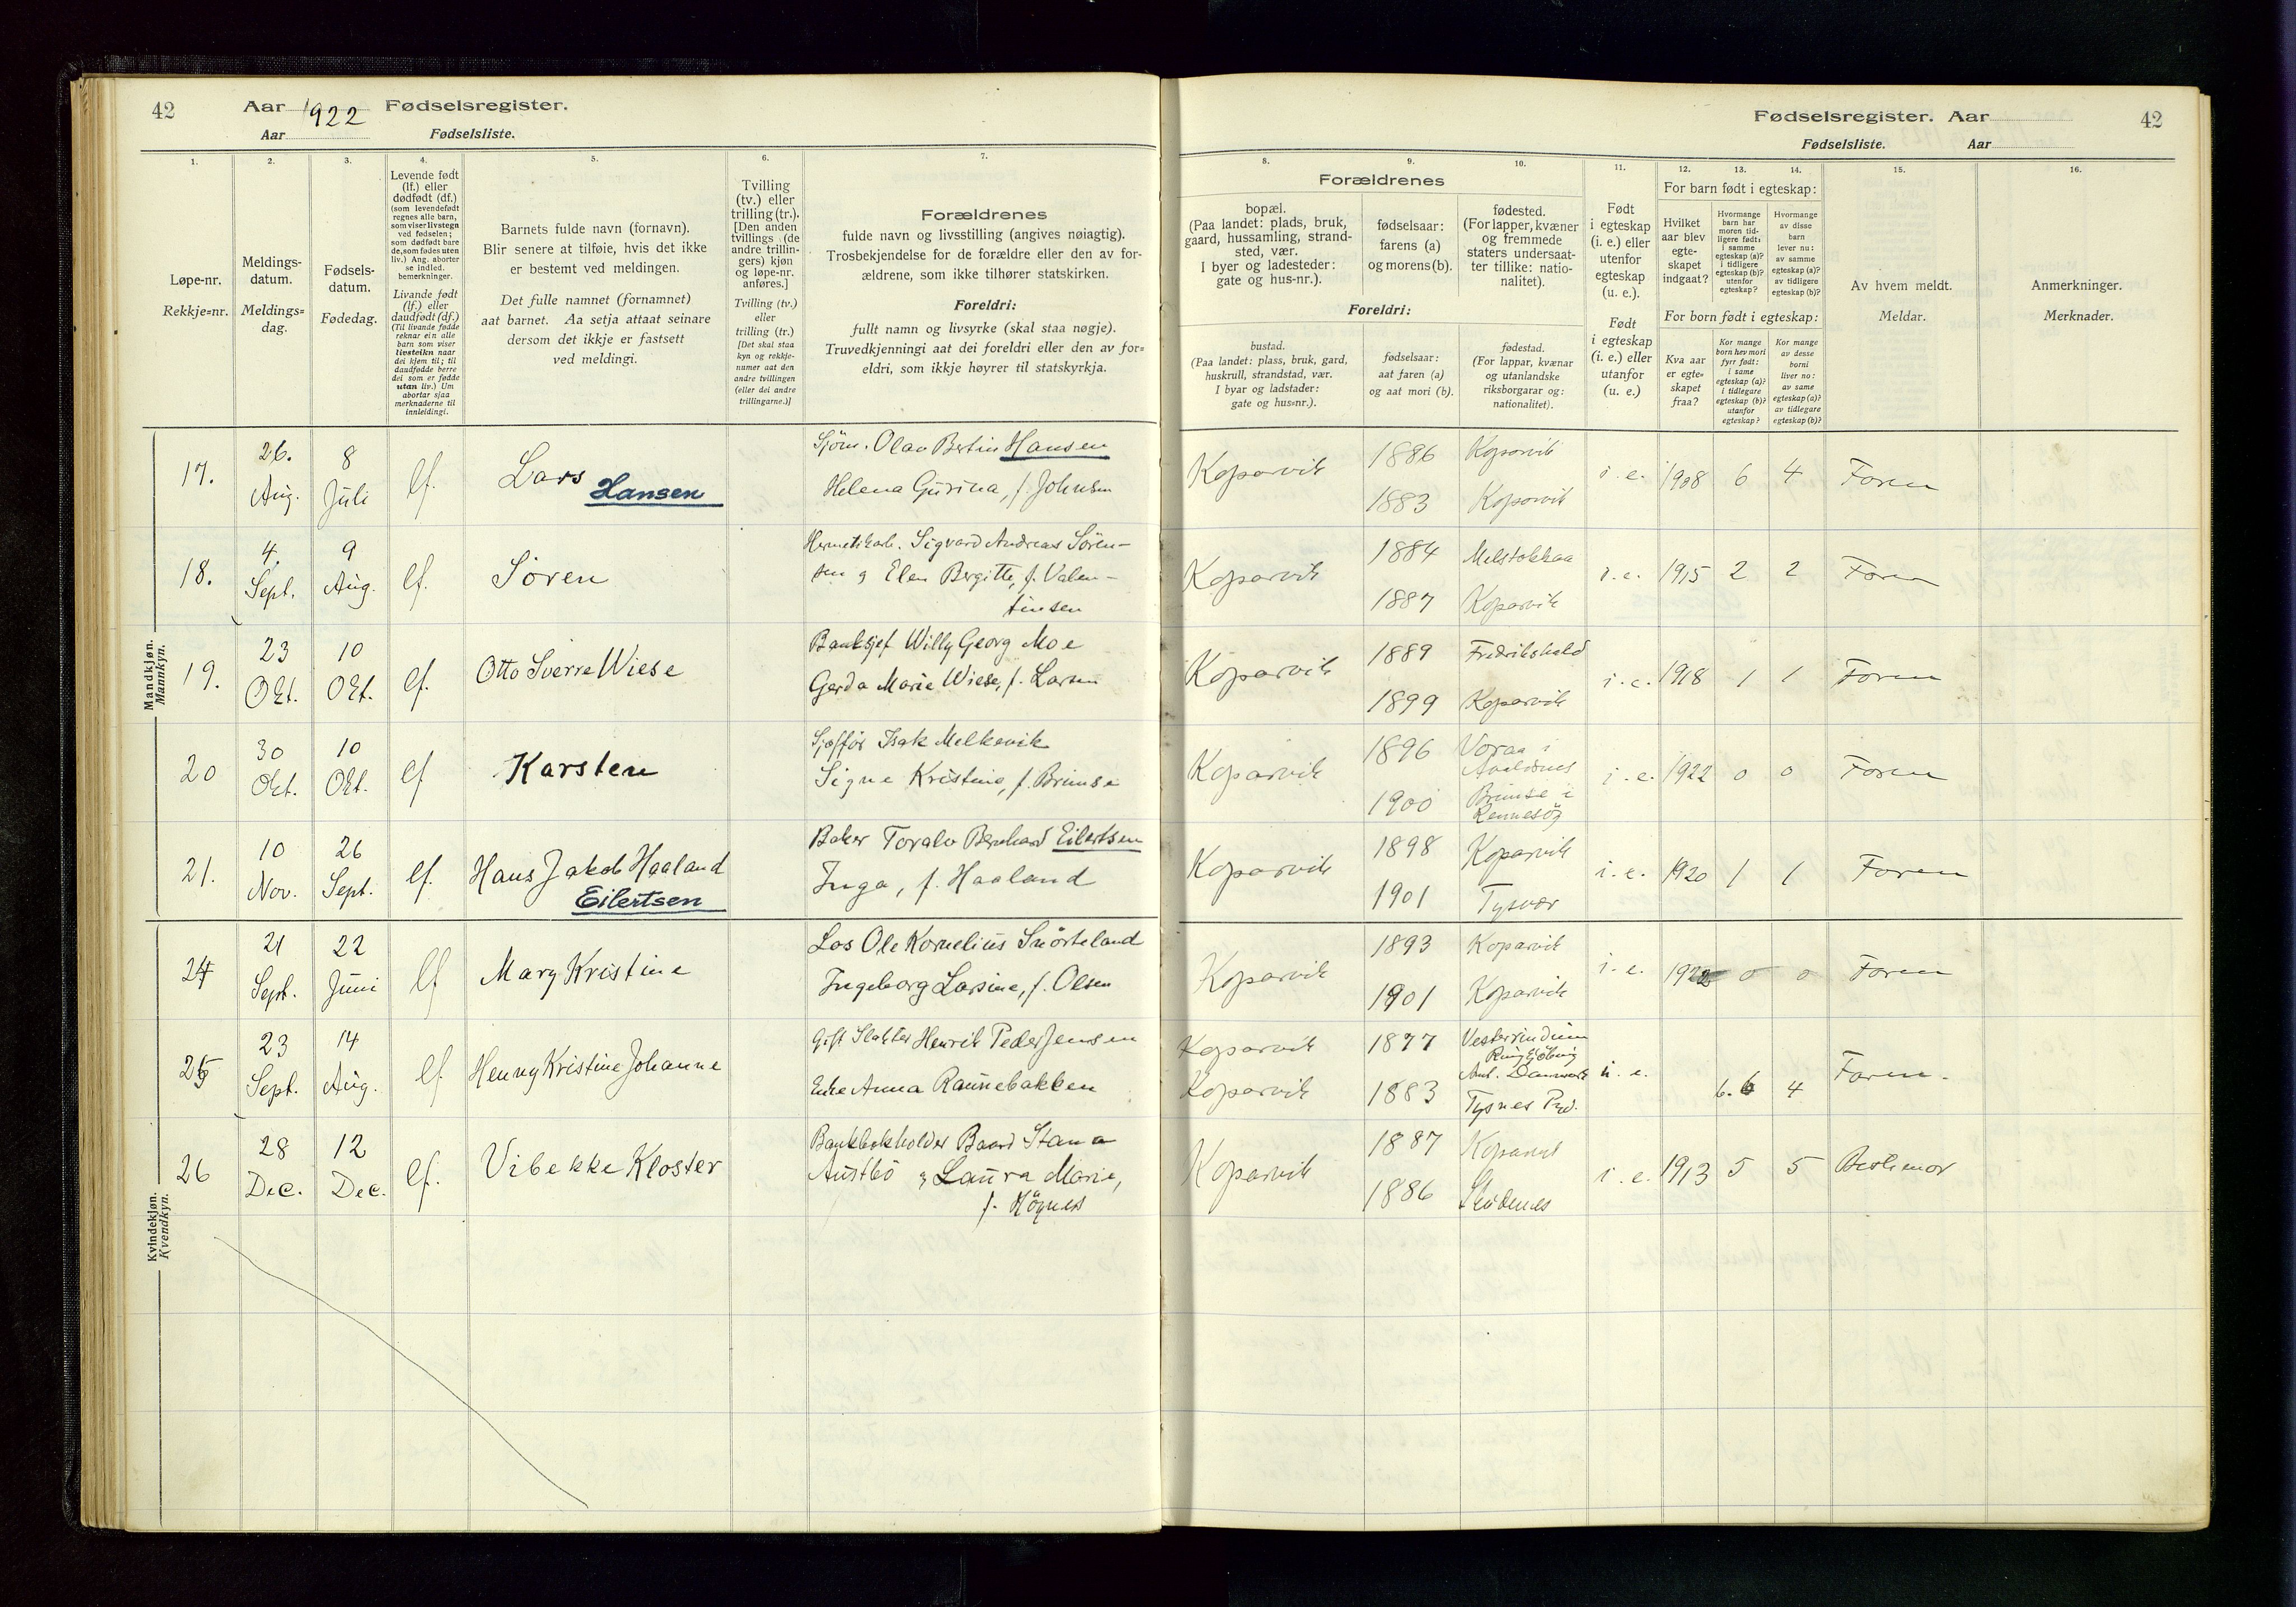 42
Aar 1922 Fødselsregister.
Aar Fødselsliste.
1.
2.
3.
4.
5.
6.
7.
Løpe-nr.
Rekkje=nr.
Meldings-
datum.
Meldings=
dag.
Fødsels-
datum.
Fødedag.
Levende født
(lf.) eller
dødfødt (df.)
(som levendefødt
regnes alle barn,
som viser livstegn
ved fødselen;
som dødfødt bare
de, som fødes uten
liv.) Ang. aborter
se indled.
bemerkninger.
Livande født
(lf.) eller
daudfødt (df.)
(Til livande fødde
reknar ein alle
barn som viser
livsteikn naar
dei kjem til; til
daudfødde berre
dei som er fødde
utan liv.) Um
abortar sjaa
merknaderne til
innleidingi.
Barnets fulde navn (fornavn).
Blir senere at tilføie, hvis det ikke
er bestemt ved meldingen.
Det fulle namnet (fornamnet)
aat barnet. Aa setja attaat seinare
dersom det ikkje er fastsett
ved meldingi.
Tvilling
(tv.) eller
trilling (tr.).
[Den anden
tvillings (de
andre trillin-
gers) kjøn
og løpe-nr.
anføres.]
Tvilling (tv.)
eller
trilling (tr.)
[Det skal staa
kyn og rekkje-
numer aat den
andre tvillingen
(eller dei andre
trillingarne.)]
Forældrenes
fulde navn og livsstilling (angives nøiagtig).
Trosbekjendelse for de forældre eller den av for-
ældrene, som ikke tilhører statskirken.
Foreldri:
fullt namn og livsyrke (skal staa nøgje).
Truvedkjenningi aat dei foreldri eller den av for=
eldri, som ikkje høyrer til statskyrkja.
Mandkjøn.
Mannkyn.
17.
26.
Aug.
8
Juli
lf.
Lars
Hansen
Sjöm. Olav Bertin Hansen
Helena Gurina, f. Johnsen
18.
4.
Sept.
9
Aug.
lf.
Sören
Hermetikarb. Sigvard Andreas Sören-
sen og Elen Bergitte, f. Valen-
tinsen
19.
23
Okt.
10
Okt.
lf.
Otto Sverre Wiese
Banksjef Willy Georg Moe
Gerda Marie Wiese, f. Larsen
20
30
Okt.
10
Okt.
lf
Karsten
Sjafför Isak Melkevik
Signe Kristine, f. Brimse
21.
10
Nov.
26
Sept.
lf.
Hans Jakob Haaland
Eilertsen
Baker Toralv Bernhard Eilertsen
Inga, f. Haaland
Kvindekjøn.
Kvendkyn.
24
21
Sept.
22
Juni
lf
Mary Kristine
Los Ole Kornelius Snörteland
Ingeborg Lasine, f. Olsen
25
23
Sept.
14
Aug.
lf.
Henny Kristine Johanne
Gift Slakter Henrik Peder Jensen
Enke Anna Raunebakken
26
28
Dec.
12
Dec.
lf.
Vibekke Kloster
Bankbokholder Baard Stana
Austbö og Laura Marie,
f. Högnes
Fødselsregister. Aar
42
Fødselsliste. Aar
8.
9.
10.
11.
12.
13.
14.
15.
16.
Forældrenes
bopæl.
(Paa landet: plads, bruk,
gaard, hussamling, strand-
sted, vær.
I byer og ladesteder:
gate og hus-nr.).
fødselsaar:
farens (a)
og morens (b).
fødested.
(For lapper, kvæner
og fremmede
staters undersaat-
ter tillike: natio-
nalitet).
Foreldri:
bustad.
(Paa landet: plass, bruk, gard,
huskrull, strandstad, vær.
I byar og ladstader:
gate og hus=nr.).
fødselsaar:
aat faren (a)
og aat mori (b).
fødestad.
(For lappar, kvænar
og utanlandske
riksborgarar og:
nationalitet).
Født
i egteskap
(i. e.) eller
utenfor
egteskap
(u. e.).
Født
i egteskap
(i. e.) eller
utanfor
(u. e.)
For barn født i egteskap:
Hvilket
aar blev
egte-
skapet
indgaat?
Hvormange
barn har
moren tid-
ligere født:
i samme
egteskap (a)?
i tidligere
egteskap (b)?
utenfor
egteskap?
Hvormange
av disse
barn
lever nu:
av samme
egteskap (a)?
av tidligere
egteskap (b)?
For born født i egteskap:
Kva aar
er egte-
skapet
fraa?
Kor mange
born hev mori
fyrr født:
i same
egteskap (a)?
i tidlegare
egteskap (b)?
utanfor
egteskap?
Kor mange
av desse
borni
liver no:
av same
egteskap (a)?
av tidlegare
egteskap (b)?
Av hvem meldt.
Meldar.
Anmerkninger.
Merknader.
Koparvik
1886
1883
Koparvik
Koparvik
i. e.
1908
6
4
Faren
Koparvik
1884
1887
Melstokkaa
Koparvik
i. e.
1915
2
2
Faren
Koparvik
1889
1899
Fredrikshald
Koparvik
i. e.
1918
1
1
Faren
Koparvik
1896
1900
Voraa i
Avaldsnes
Brimse i
Rennesöy
i. e.
1922
0
0
Faren
Koparvik
1898
1901
Koparvik
Tysvær
i. e.
1920
1
1
Faren
Koparvik
1893
1901
Koparvik
Koparvik
i. e.
1922
0
0
Faren
Koparvik
Koparvik
1877
1883
Vesterrindum
Ringkjöbing
Amt. Danmark
Tysnes Pgd.
u. e.
6.6
4
Faren.
Koparvik
1887
1886
Koparvik
Skudenes
i. e.
1913
5
5
Bestemor